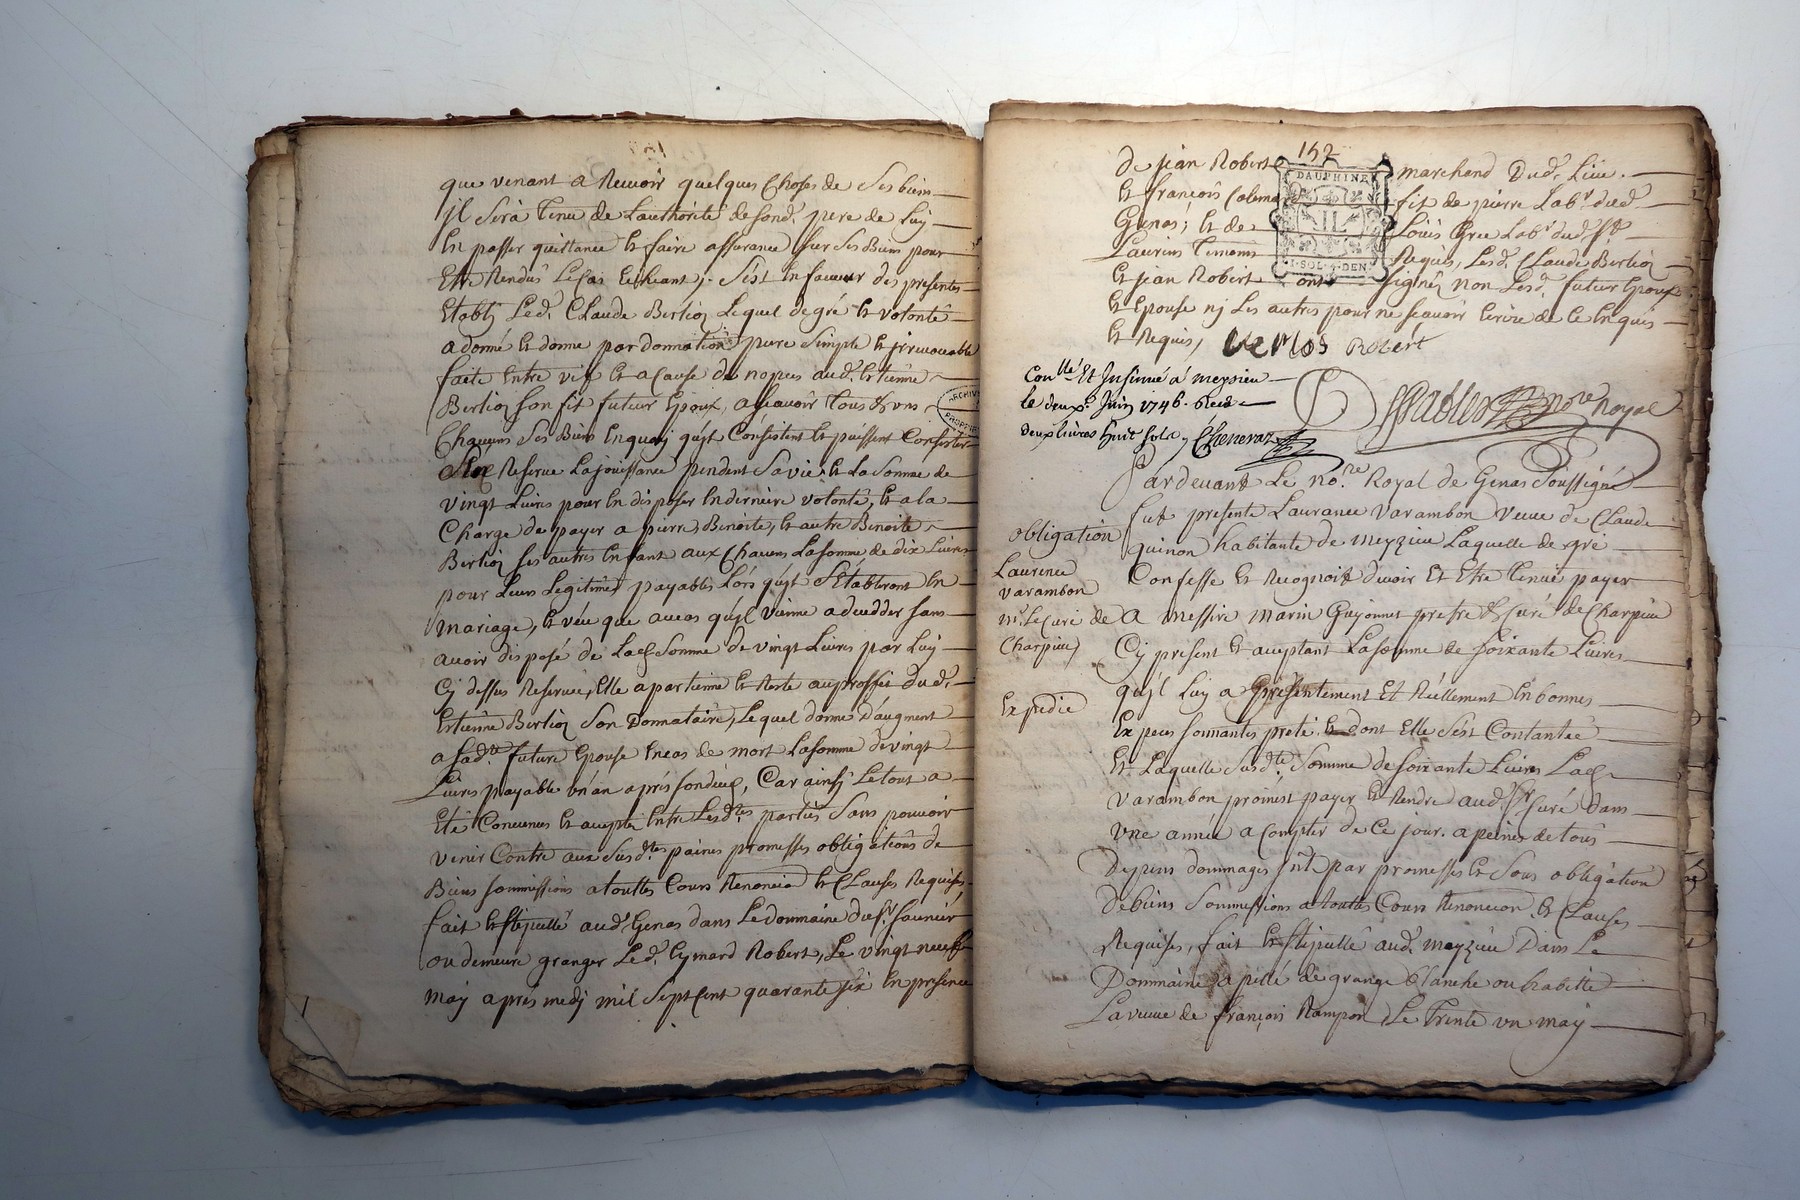 que venant a Recevoir quelques Choses de Ses biens
jl Serà Tenu de Lauthorité desond. pere de Luy
En passer quittance Et faire assurance Sur Ses Biens pour
Etre Rendus Le Cas Echeant; Sést En faveur des presentes
Etably Led. Claude Berlioz Lequel de gré Et volonté
a donné Et donne par donnation pure Simple Et jrrevocable
faite Entre vif Et a Cause de nopces aud. Estienne
Berlioz Son fit futur Epoux, ascavoir Tous & uns
Chacuns Ses Biens En quoy qúyt Consistent Et puissent Consister
Se Reserve La jouissance pendent Sa vie Et La Somme de
vingt Livres pour En disposer En derniere volonté, Et a la
Charge de payer a pierre, Benoite, Et autre Benoite
Berlioz Ses autres Enfant aux Chacuns La Somme de dix Livres
pour Leurs Legitimes payables Lors qúyt S'Etabliront En
mariage, Et véu que aucas quyl vienne a decedder Sans
avoir disposé de Lad. Somme de vingt Livres par Luy
Cy dessus Reservée, Elle apartienne Et Reste au proffit dud.
Estienne Berlioz Son Donnataire, Lequel donne D'augment
a Sad.te future Epouse En cas de mort La Somme de vingt
Livres payable un án aprés Son decés, Car ainsy Le tout a
Eté Convenus Et accepté Entre Lesd.tes parties Sans pouvoir
venir Contre aux Susd.tes paines promesses obligations de
Biens Sommissions a touttes Cours Renoncia Et Clauses Requises
fait Et Stipullé aud. Genas dans Le Dommaine du Sr. Saunier
ou demeure granger Led. Eymard Robert, Le vingt neuf
may aprés medy mil Sept Cent quarante Six En presence
152
de jean Robert marchand Dud. Lieu
Et françois Colomb fit de pierre Lab.r dud.
Genas; Et de Louis Gree Lab.r dud. St.
Laurens Temoins Requis, Lesd. Claude Berlioz
Et jean Robert ont Signés non Lesd. futur Epoux
Et Epouse nj Les autres pour ne scavoir Ecrire de Ce Enquis
Et Requis,
DAUPHINE
I·SOL·4·DEN
ARCHIV
Robert
Con.llé Et Insinué á meysieu
le deux.e Juin 1746. Reçu
deux livres huit sols, Cheneraz
nore Royal
Pardevant Le no.re Royal de Genas Soussigné
fut presente Laurance Varambon Veuve de Claude
quinon habitante de meyzieu Laquelle de gré
Confesse Et Recognoit devoir Et Etre Tenue payer
A messire Marin Guyonnet pretre & Curé de Charpieu
Cy present Et acceptant La Somme de Soixante Livres
qúyl Luy a presentement Et Réellement En bonnes
Expeces sonnantes preté Et dont Elle S'ést Contantée
Et Laquelle Susd.te Somme de Soixante Livres Lad.
Varambon promest payer Et Rendre aud. Sr. Curé Dans
une année a Compter de Ce jour. a peines de tous
Depens dommages Int. par promesses Et Sous obligation
De biens Sommissions a touttes Cours Renoncion Et Clauses
Requises, fait Et Stipullé aud. meyzieu Dans Le
Dommaine apellé de grange Blanche ou habitte
La veuve de françois Rampon Le Trente un may
obligation
Laurence
varambon
mr. Le Curé de
Charpieu
Expedie